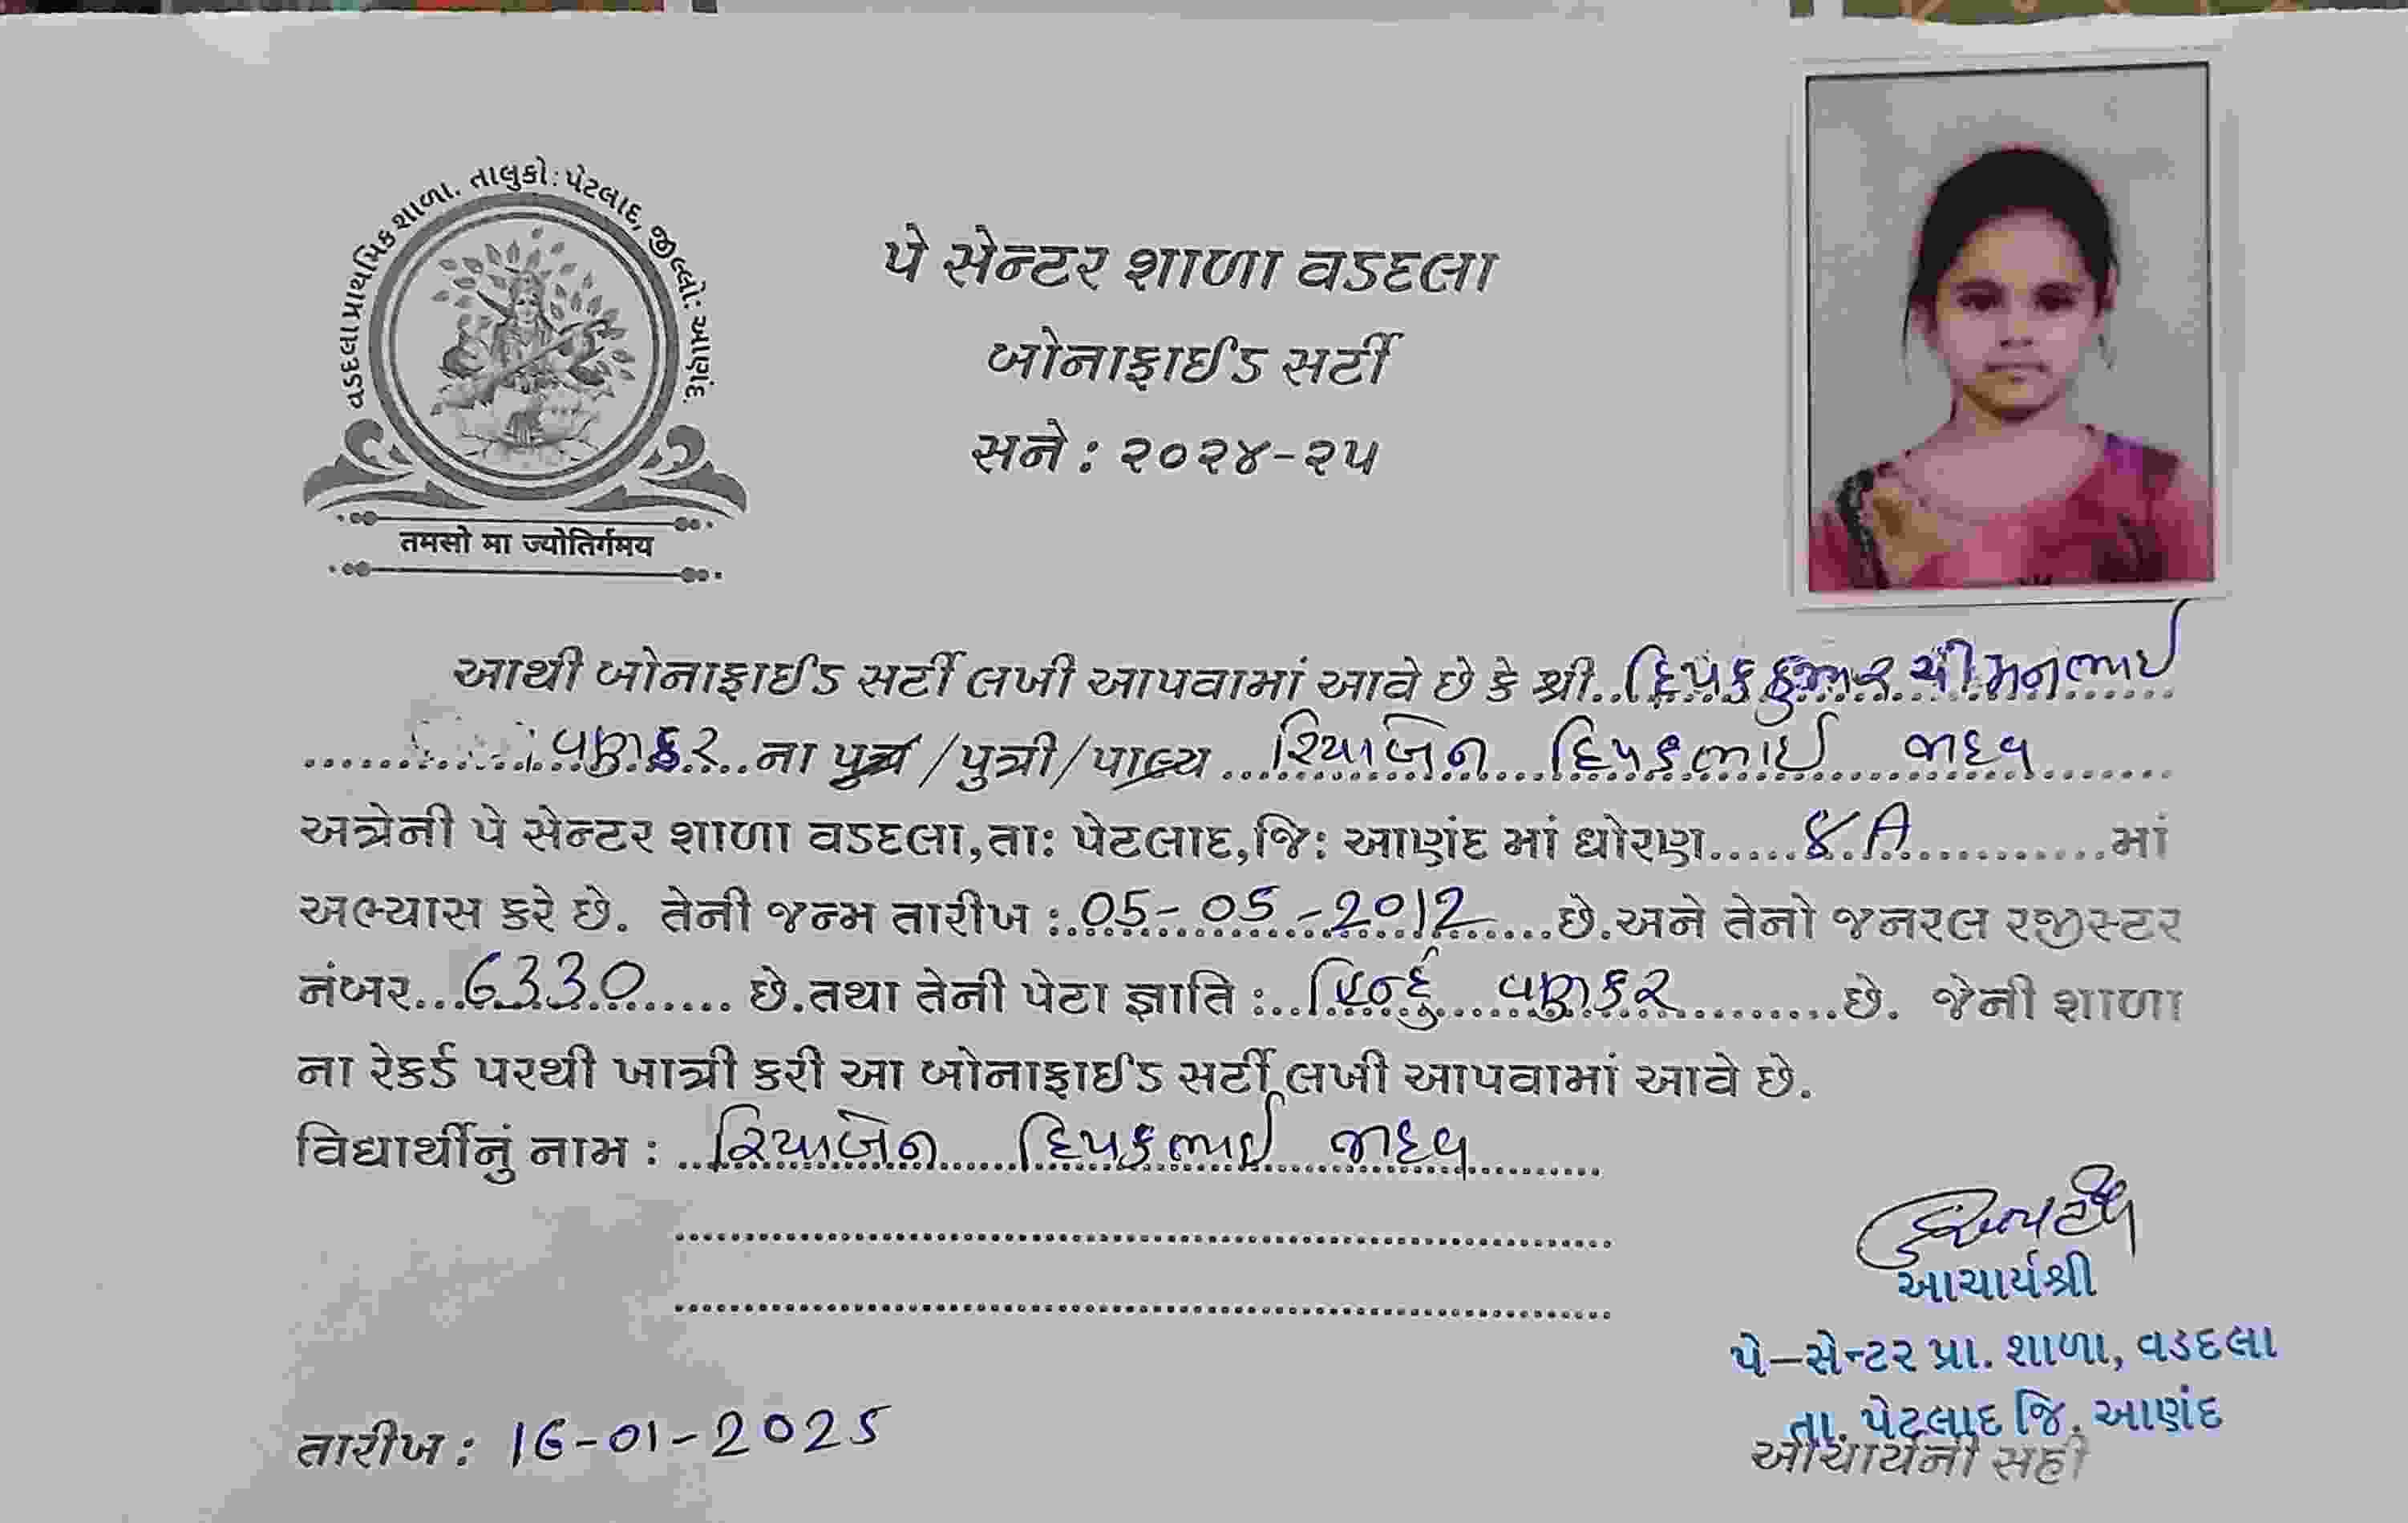 વડદલા પ્રાથમિક શાળા. તાલુકો : પેટલાદ, જીલ્લો: આણંદ.
तमसो मा ज्योतिर्गमय
પે સેન્ટર શાળા વડદલા
બોનાફાઈડ સર્ટી
સને : ૨૦૨૪-૨૫
આથી બોનાફાઈડ સર્ટી લખી આપવામાં આવે છે કે શ્રી..દિપકકુમાર ચીમનભાઈ
વણકર..ના પુત્ર /પુત્રી/પાલ્ય રિયાબેન દિપકભાઈ જાદવ
અત્રેની પે સેન્ટર શાળા વડદલા,તા: પેટલાદ,જિ: આણંદ માં ધોરણ.....૪ A..........માં
અભ્યાસ કરે છે. તેની જન્મ તારીખ :.05-05-2012.....છે.અને તેનો જનરલ રજીસ્ટર
નંબર...6330...... છે.તથા તેની પેટા જ્ઞાતિ :..હિન્દુ વણકર.........છે. જેની શાળા
ના રેકર્ડ પરથી ખાત્રી કરી આ બોનાફાઈડ સર્ટી લખી આપવામાં આવે છે.
વિદ્યાર્થીનું નામ : ..રિયાબેન દિપકભાઈ જાદવ
આચાર્યશ્રી
પે–સેન્ટર પ્રા. શાળા, વડદલા
તા. પેટલાદ જિ. આણંદ
તારીખ : 16-01-2025
આચાર્યની સહી